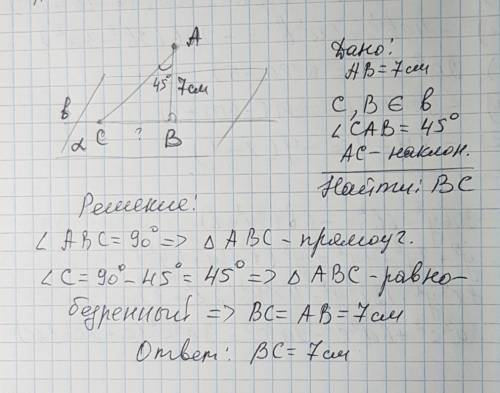 A
45° 7см
в
α C ? B
Дано:
AB = 7см
C, B ∈ в
∠CAB = 45°
AC - наклон.
Найти: BC
Решение:
∠ ABC = 90° => △ ABC - прямоуг.
∠C = 90° - 45° = 45° => △ ABC - равно-
бедренный => BC = AB = 7см
Ответ: BC = 7см